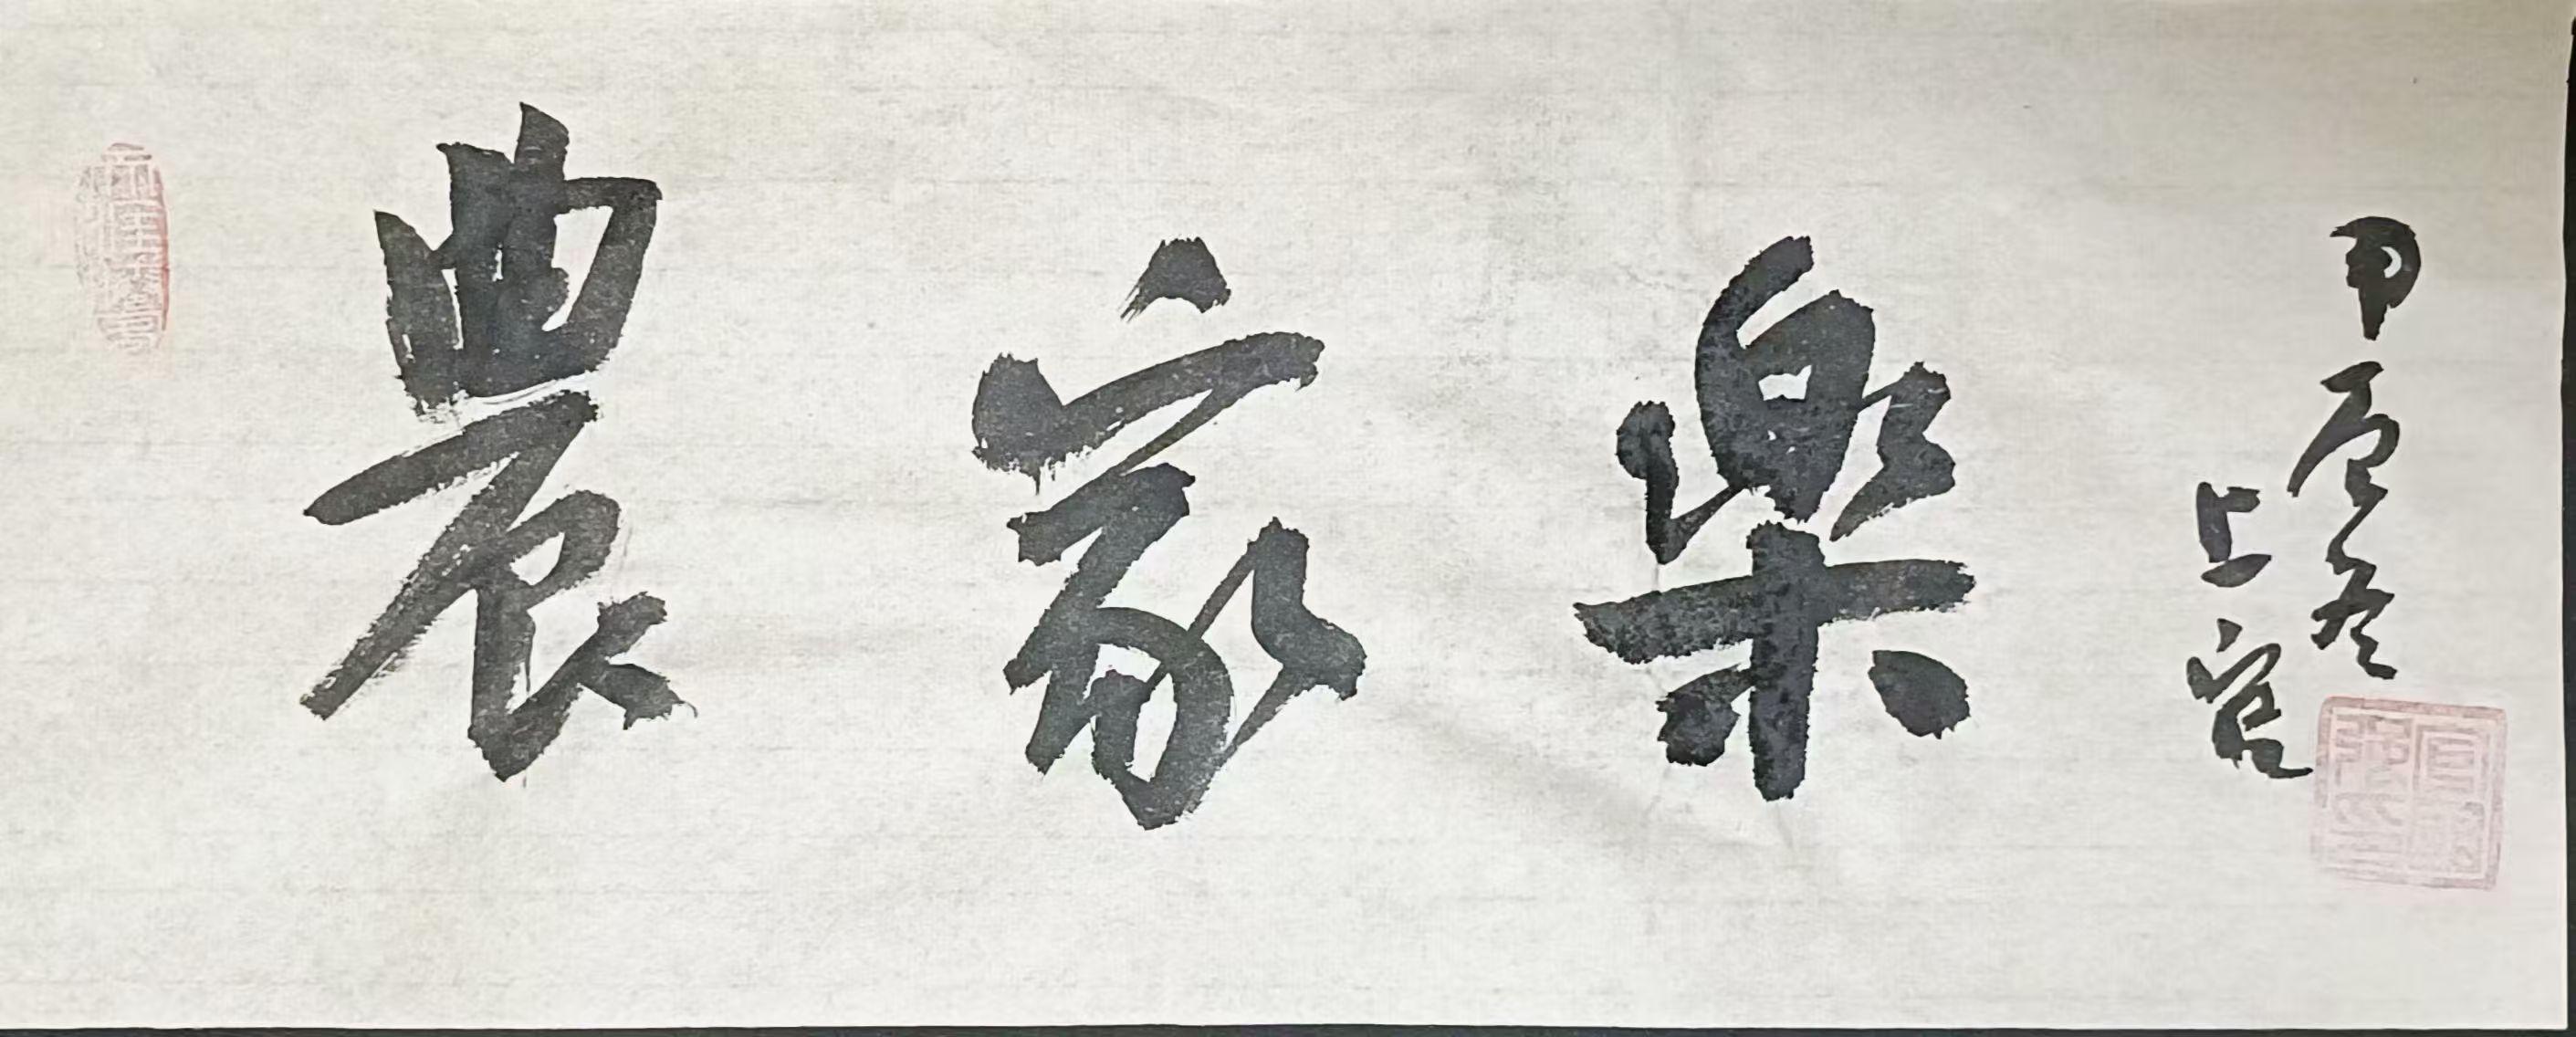 農家樂
甲辰冬
上官